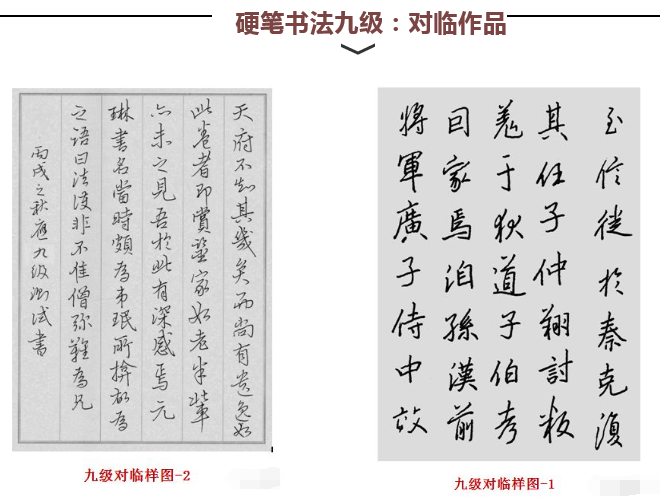 硬笔书法九级：对临作品
天府不知其幾矣而尚有遺逸如
此卷者即賞鑒家如老米輩
亦未之見吾於此有深感焉元
琳書名當時頗為弟珉所揜故為
之語曰法護非不佳僧彌難為兄
丙戌之秋應九級測試書
九级对临样图-2
至信徙於秦克復
其任子仲翔討叛
羌于狄道子伯考
回家焉洎孫漢前
將軍廣子侍中敢
九级对临样图-1